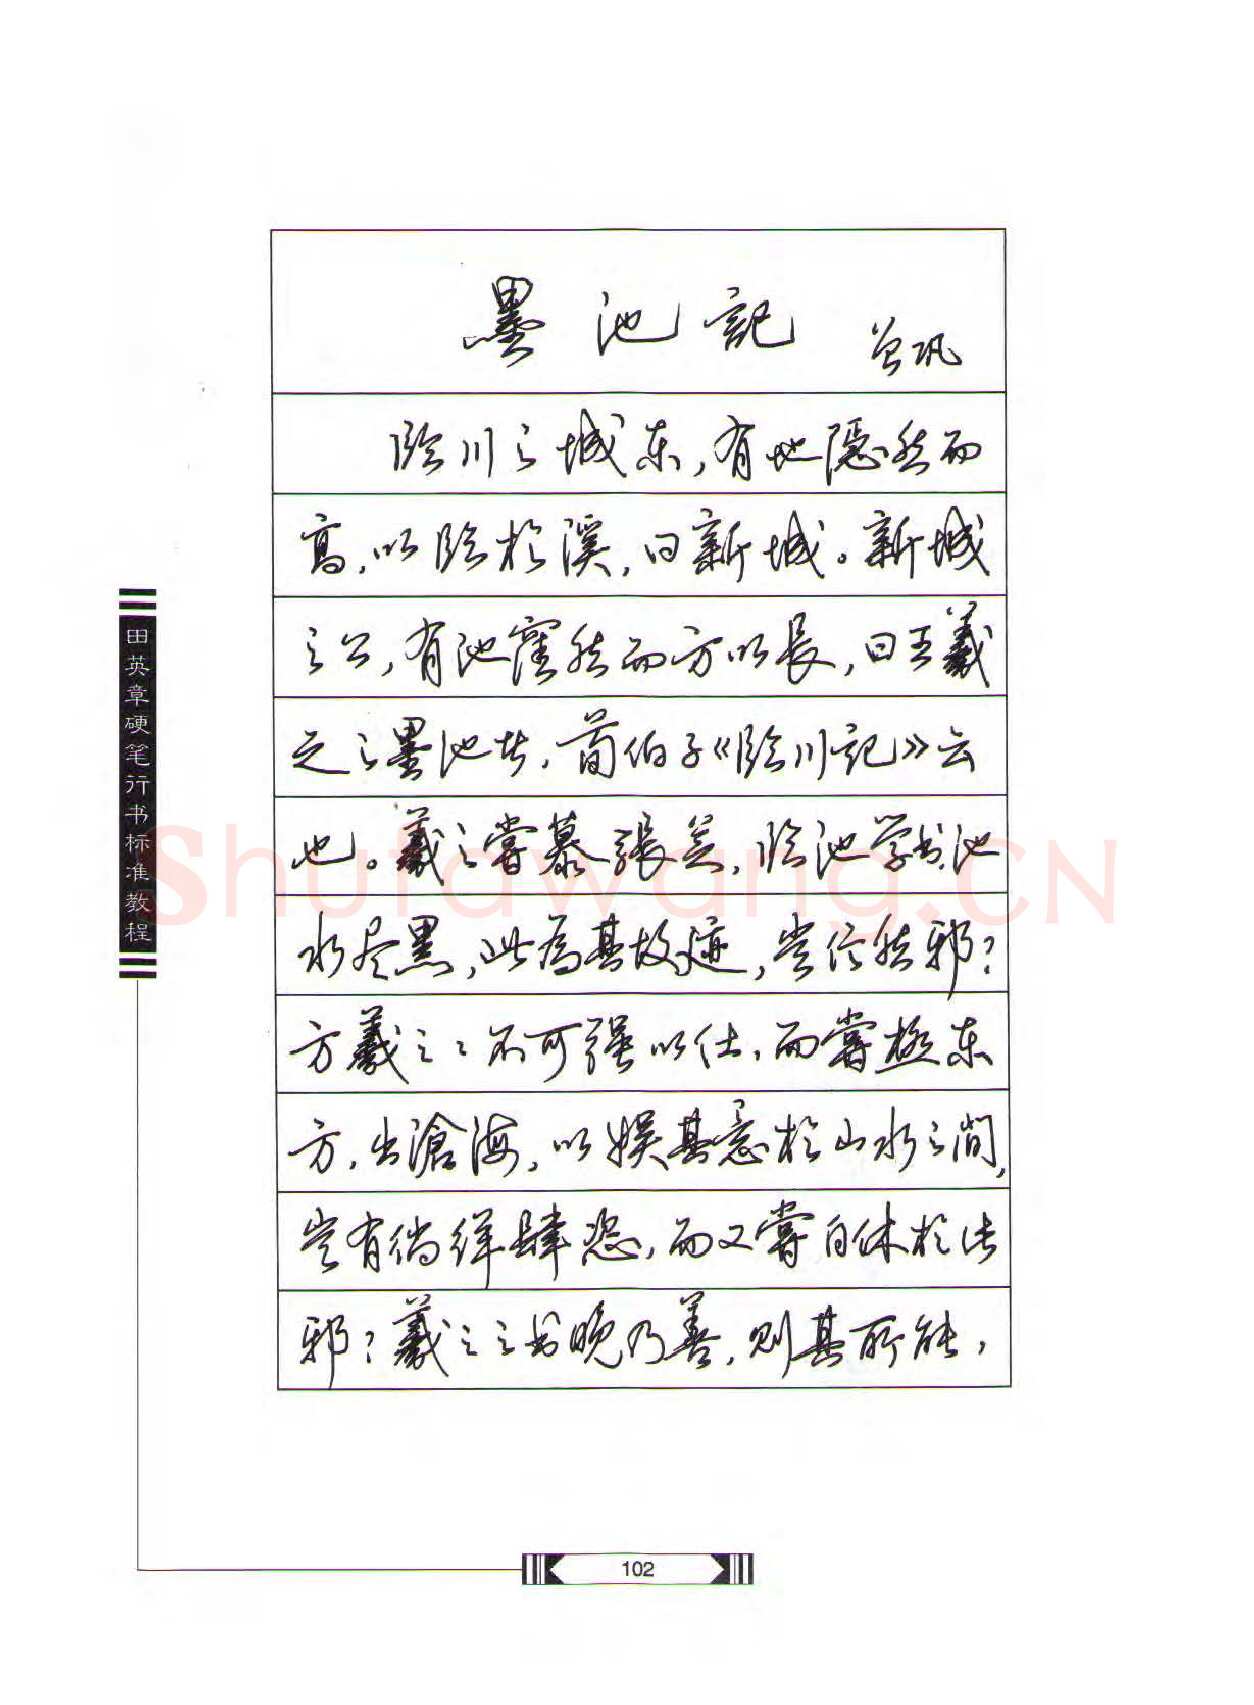 墨池記 曾巩
臨川之城东,有地隱然而
高,以臨於溪,曰新城。新城
之上,有池窪然而方以長,曰王羲
之之墨池者,荀伯子《臨川記》云
也。羲之嘗慕張芝,臨池学书,池
水尽黑,此為其故迹,豈信然邪?
方羲之之不可强以仕,而嘗極东
方,出滄海,以娱其意於山水之间,
豈有徜徉肆恣,而又嘗自休於此
邪?羲之之书晚乃善,则其所能,
田英章硬笔行书标准教程
Shufawang.CN
102